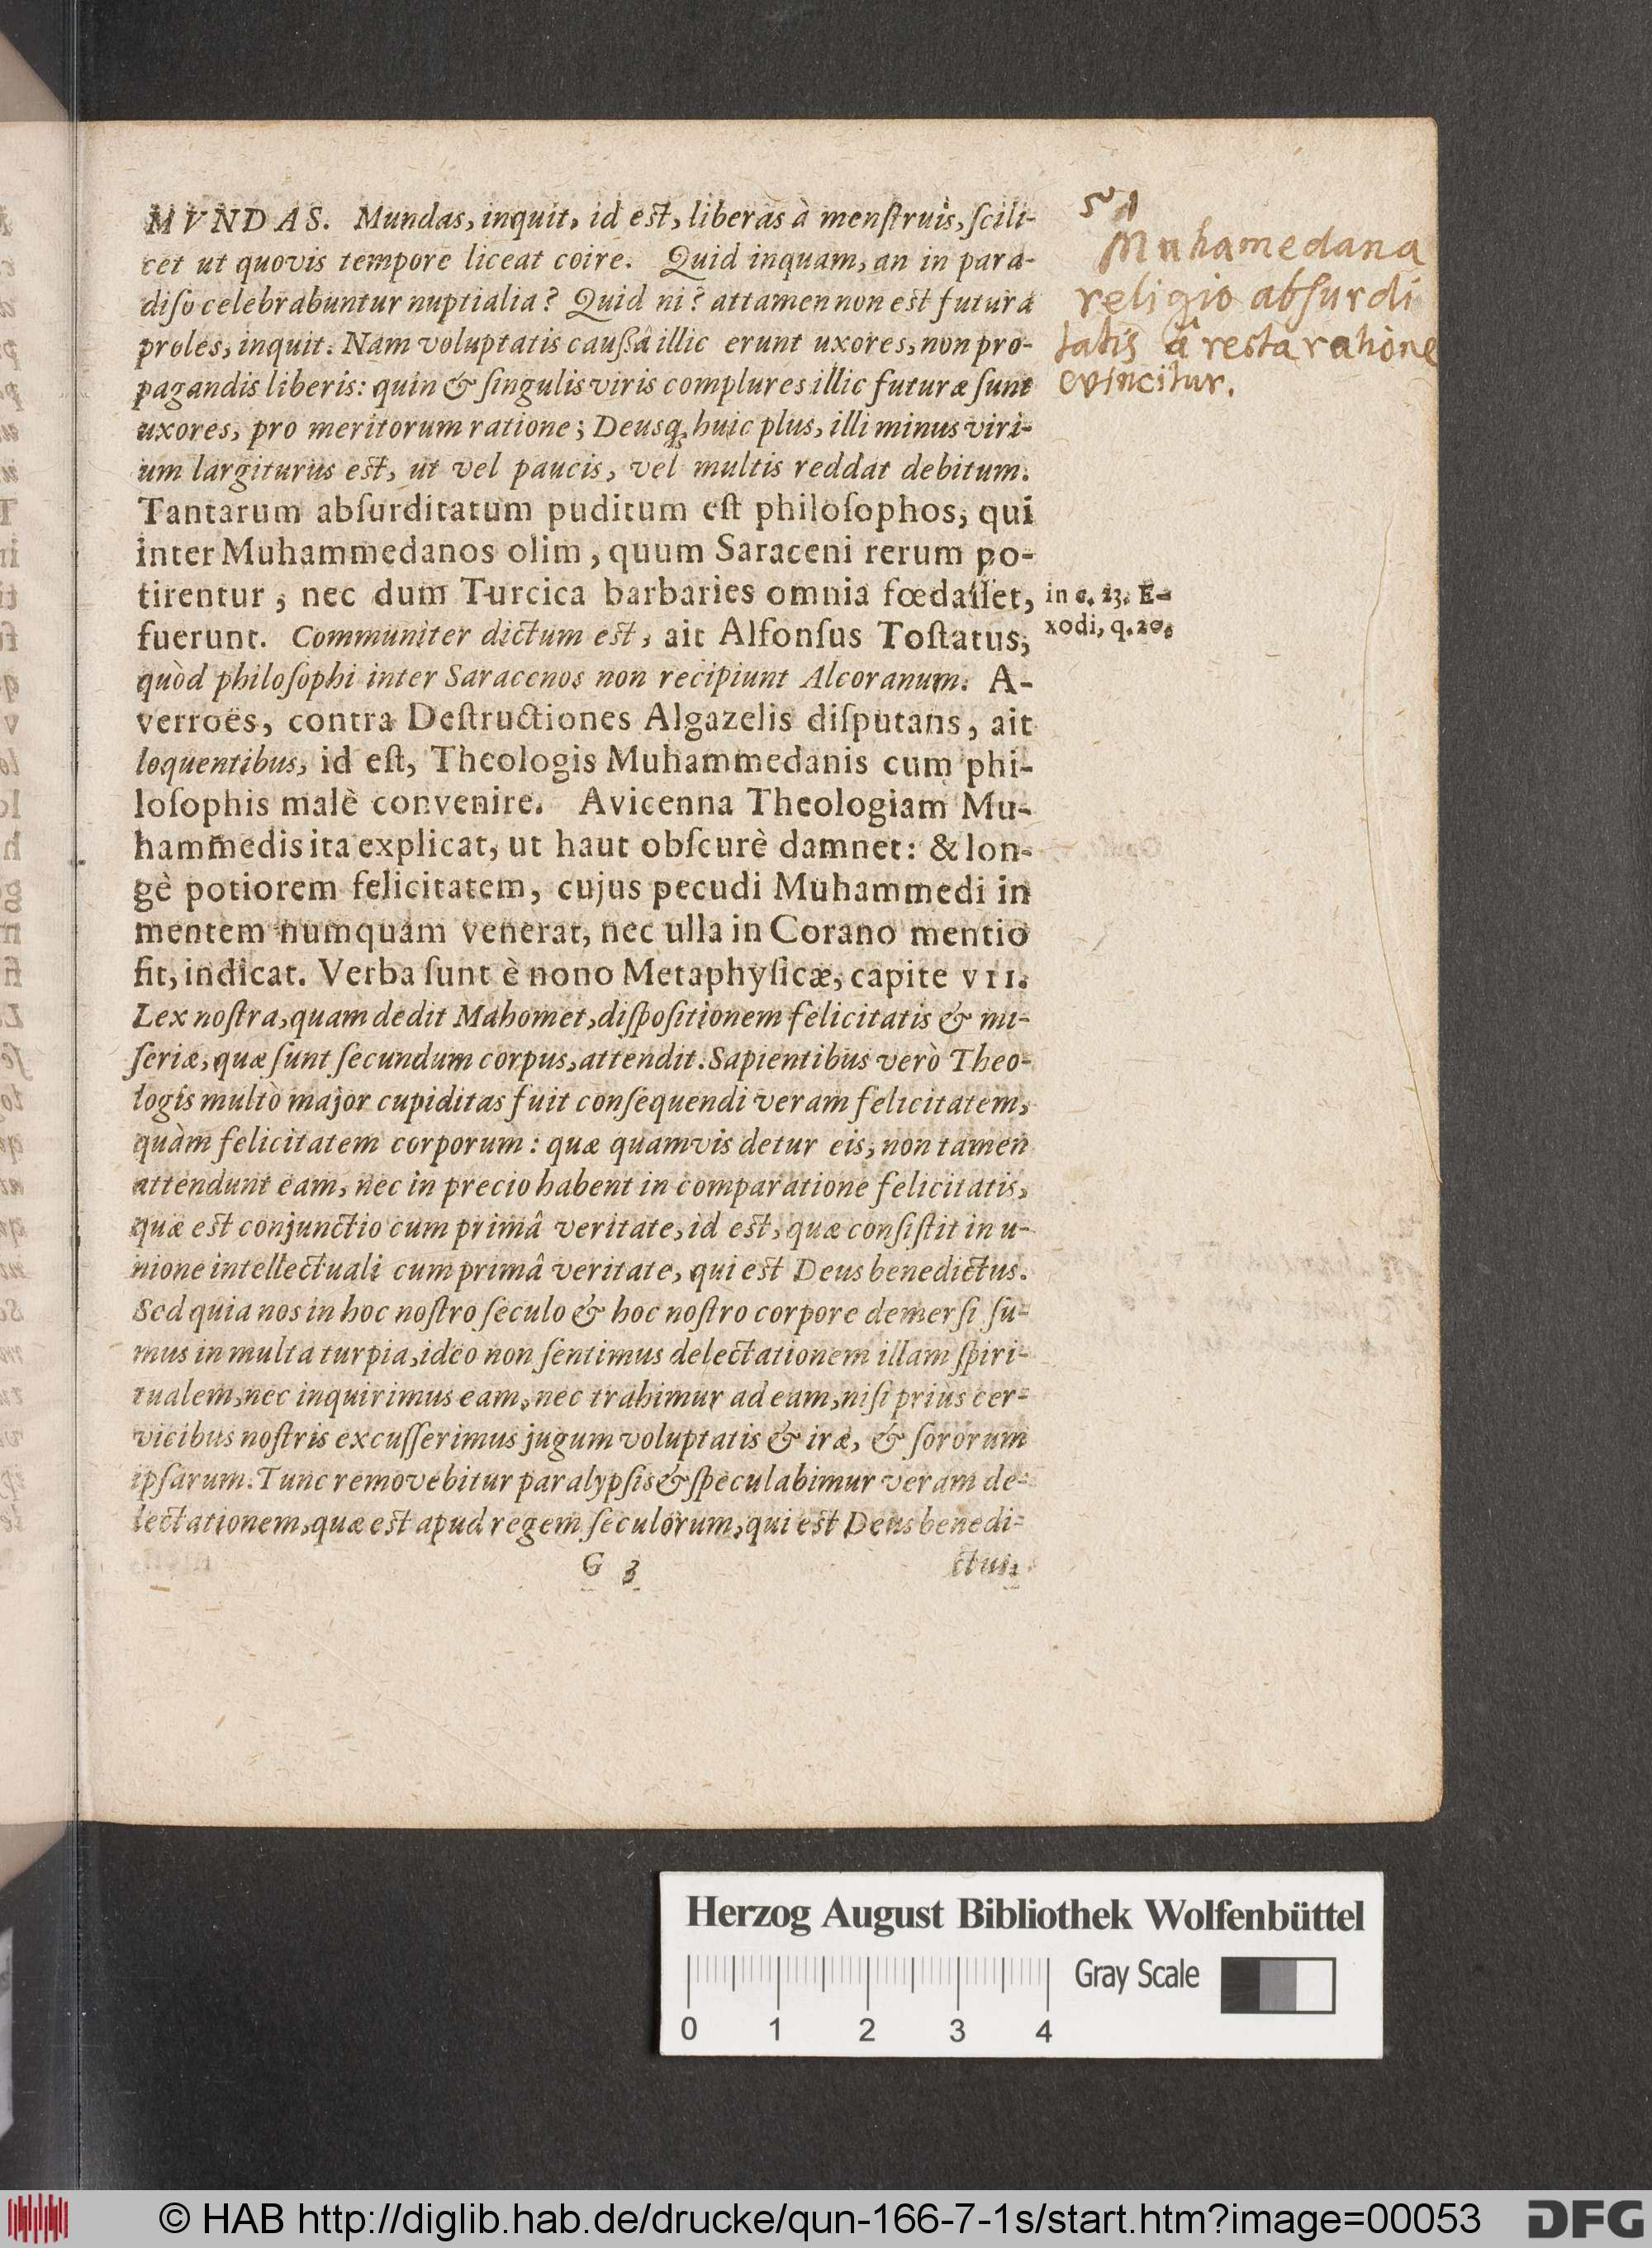 51
Muhamedana
religio absurdi
tatis â recta ratione
evincitur.
MVNDAS. Mundas, inquit, id est, liberas à menſtruis, ſcili-
cet ut quovis tempore liceat coire. Quid inquam, an in para-
diſo celebrabuntur nuptialia? Quid ni? attamen non est futura
proles, inquit. Nam voluptatis cauſsâ illic erunt uxores, non pro-
pagandis liberis: quin & ſingulis viris complures illic futuræ ſunt
uxores, pro meritorum ratione; Deusq, huic plus, illi minus viri-
um largiturus est, ut vel paucis, vel multis reddat debitum.
Tantarum abſurditatum puditum eſt philoſophos, qui
inter Muhammedanos olim, quum Saraceni rerum po-
tirentur, nec dum Turcica barbaries omnia fœdaſſet,
in c. 23. E-
xodi, q. 20.
fuerunt. Communiter dictum est, ait Alfonſus Toſtatus,
quòd philoſophi inter Saracenos non recipiunt Alcoranum. A-
verroës, contra Deſtructiones Algazelis diſputans, ait
loquentibus, id eſt, Theologis Muhammedanis cum phi-
loſophis malè convenire. Avicenna Theologiam Mu-
hammedis ita explicat, ut haut obſcurè damnet: & lon-
gè potiorem felicitatem, cujus pecudi Muhammedi in
mentem numquàm venerat, nec ulla in Corano mentio
fit, indicat. Verba ſunt è nono Metaphyſicæ, capite VII.
Lex noſtra, quam dedit Mahomet, diſpoſitionem felicitatis & mi-
ſeriæ, quæ ſunt ſecundum corpus, attendit. Sapientibus verò Theo-
logis multò major cupiditas fuit conſequendi veram felicitatem,
quàm felicitatem corporum: quæ quamvis detur eis, non tamen
attendunt eam, nec in precio habent in comparatione felicitatis,
quæ est conjunctio cum primâ veritate, id est, quæ conſiſtit in u-
nione intellectuali cum primâ veritate, qui est Deus benedictus.
Sed quia nos in hoc noſtro ſeculo & hoc noſtro corpore demerſi ſu-
mus in multa turpia, ideo non ſentimus delectationem illam ſpiri-
tualem, nec inquirimus eam, nec trahimur ad eam, niſi priùs cer-
vicibus noſtris excuſſerimus jugum voluptatis & iræ, & ſororum
ipſarum. Tunc removebitur paralypſis & ſpeculabimur veram de-
lectationem, quæ est apud regem ſeculorum, qui est Deus benedi-
G 3
ctus.
Herzog August Bibliothek Wolfenbüttel
Gray Scale
0 1 2 3 4
© HAB http://diglib.hab.de/drucke/qun-166-7-1s/start.htm?image=00053
DFG